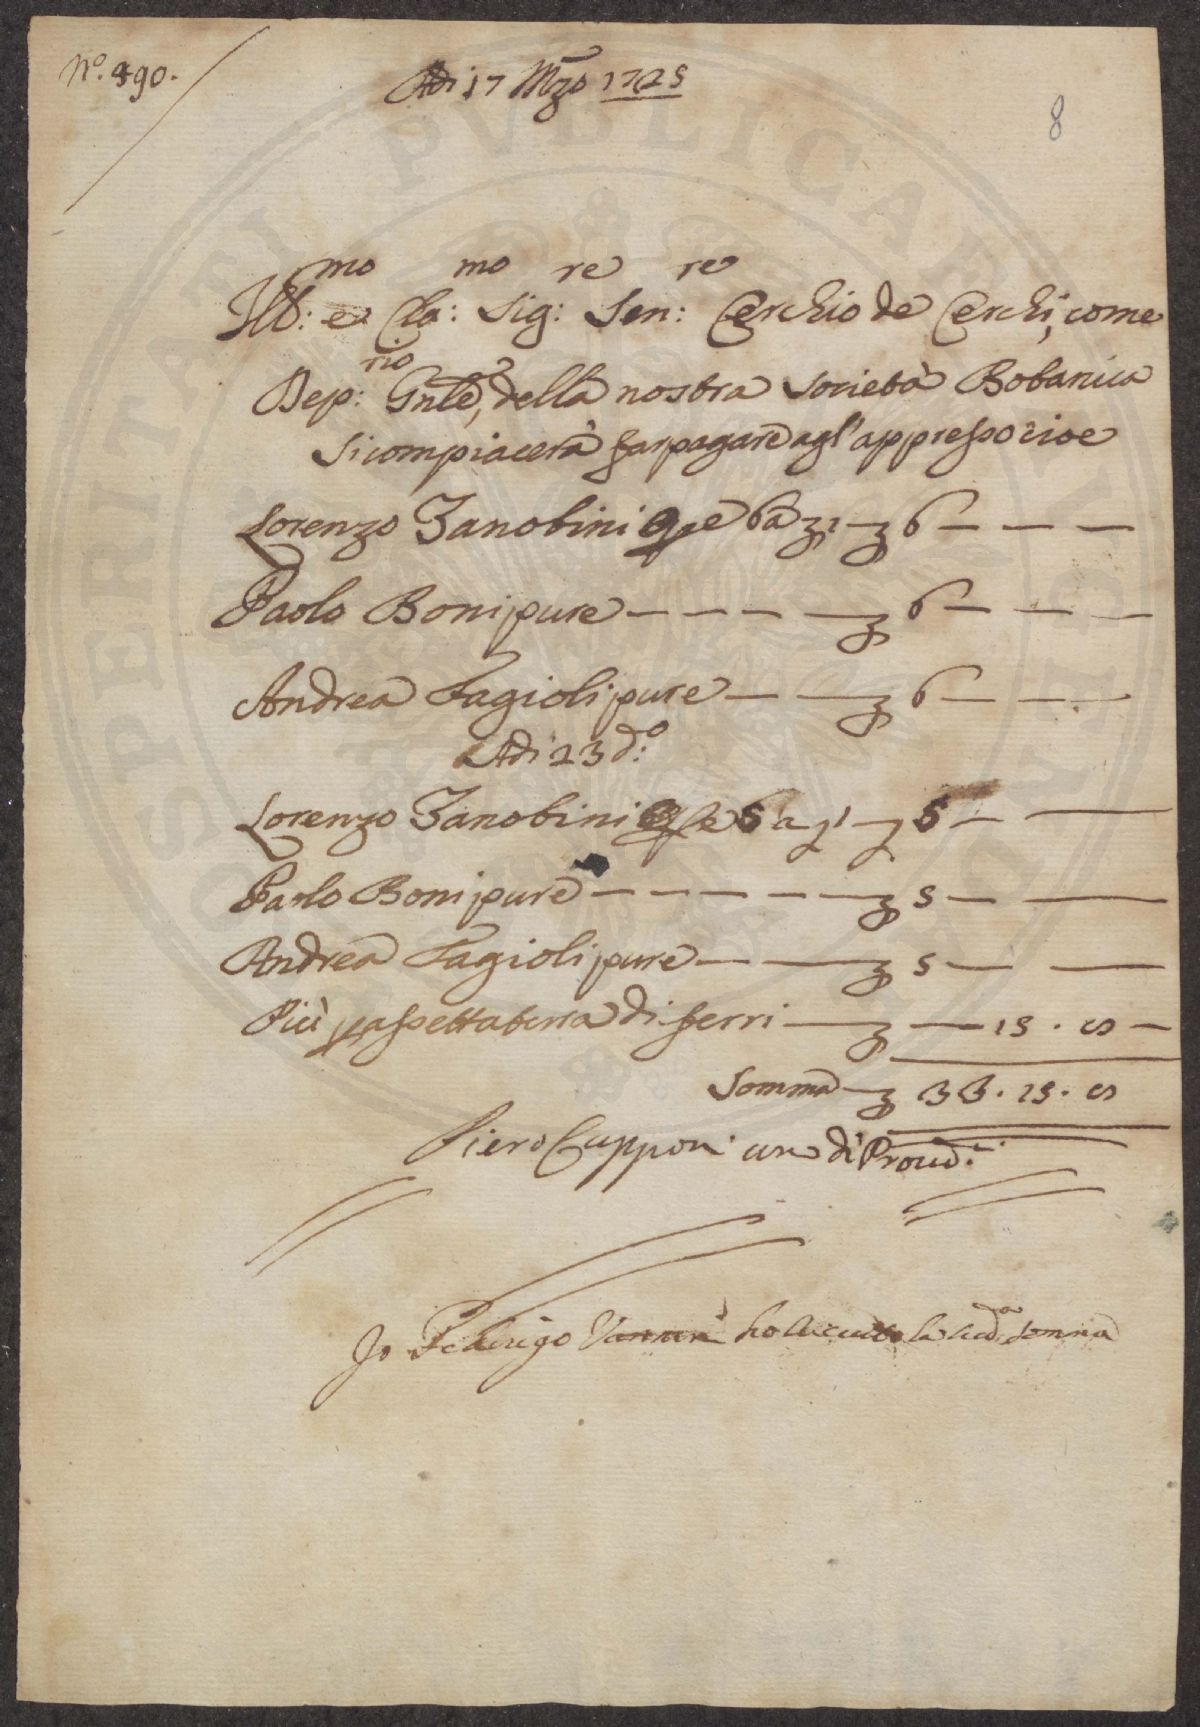 N.° 490.
Adi 17 Mzo 1725
8
Ill:mo e Cla:mo Sig:re Sen:re Cerchio de Cerchi, come
Dep:rio Gnle, della nostra Società Botanica
si compiacerà far pagare agl'appresso cioe
Lorenzo Zanobini 6 a 1 6
Paolo Boni pure 6
Andrea Fagioli pure 6
Adi 23 d:o
Lorenzo Zanobini 5 a 1 5
Paolo Boni pure 5
Andrea Fagioli pure 5
Più p assettatura di ferri 15.
Somma 33. 15.
Piero Capponi uno di Provd.ri
Io Federigo Vannini ho riceuto la sud.a somma
SOSPENITATI PVBLICAE